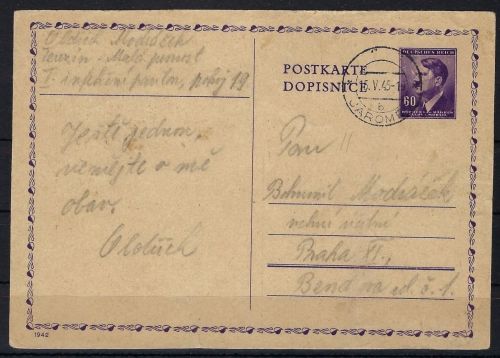 Oldřich Modráček
Terezín - Malá pevnost
I. infekční pavilon, pokoj 19
Ještě jednou
nemějte o mě
obav.
Oldřich
1942
POSTKARTE
DOPISNICE
DEUTSCHES REICH
60
V.45
JAROM
b
Pan
Bohumil Modráček
vrchní
Praha XI.,
č. 1.